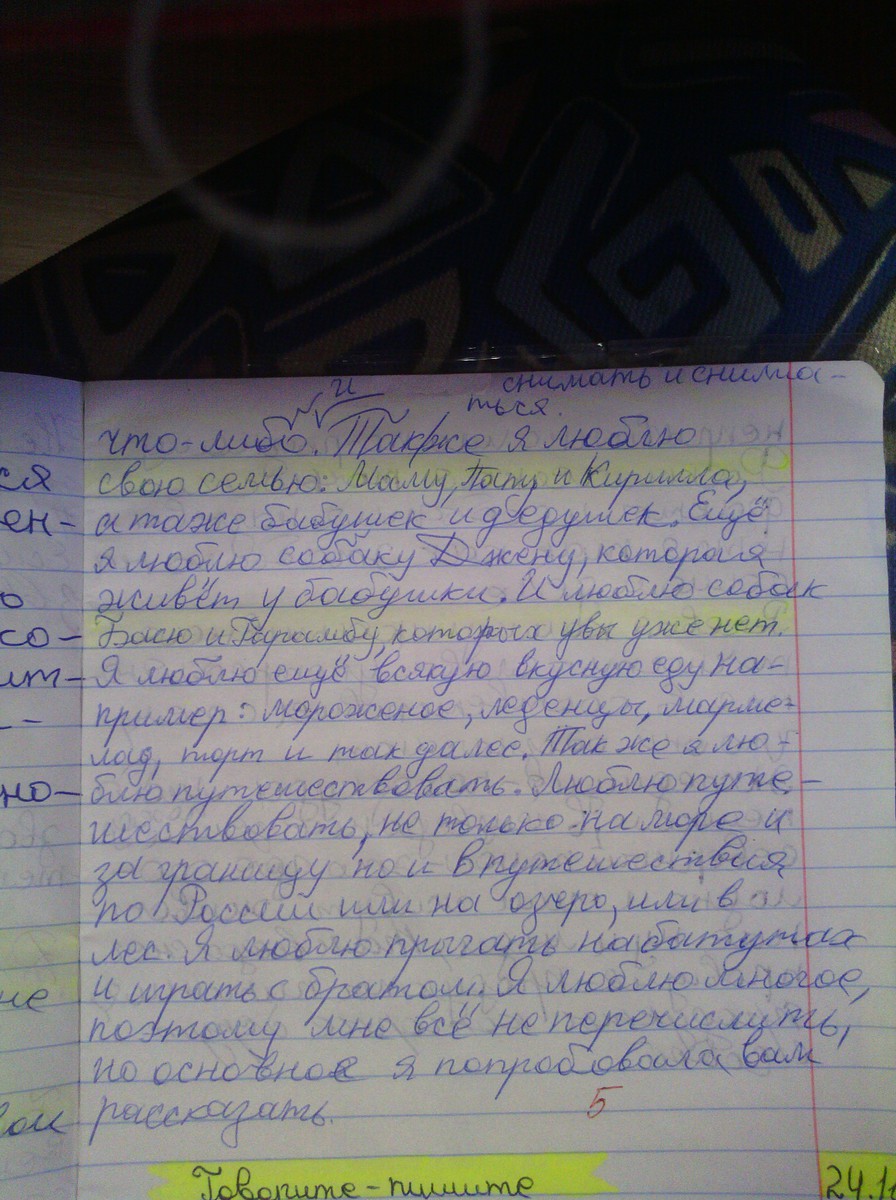 и снимать и снима-
ться.
что-либо. Также я люблю
свою семью: Маму, Папу и Кирилла,
а таже бабушек и дедушек. Ещё
я люблю собаку Джену, которая
живёт у бабушки. И люблю собак
Басю и Гарамбу, которых увы уже нет.
Я люблю ещё всякую вкусную еду на-
пример: мороженое, леденцы, марме-
лад, торт и так далее. Также я лю-
блю путешествовать. Люблю путе-
шествовать, не только на море и
за границу но и в путешествия
по России или на озеро, или в
лес. Я люблю прыгать на батутах
и играть с братом. Я люблю многое,
поэтому мне всё не перечислить,
но основное я попробовала вам
рассказать.
5
Говорите-пишите
24.1
ся
ен-
о
со-
ит-
но-
не